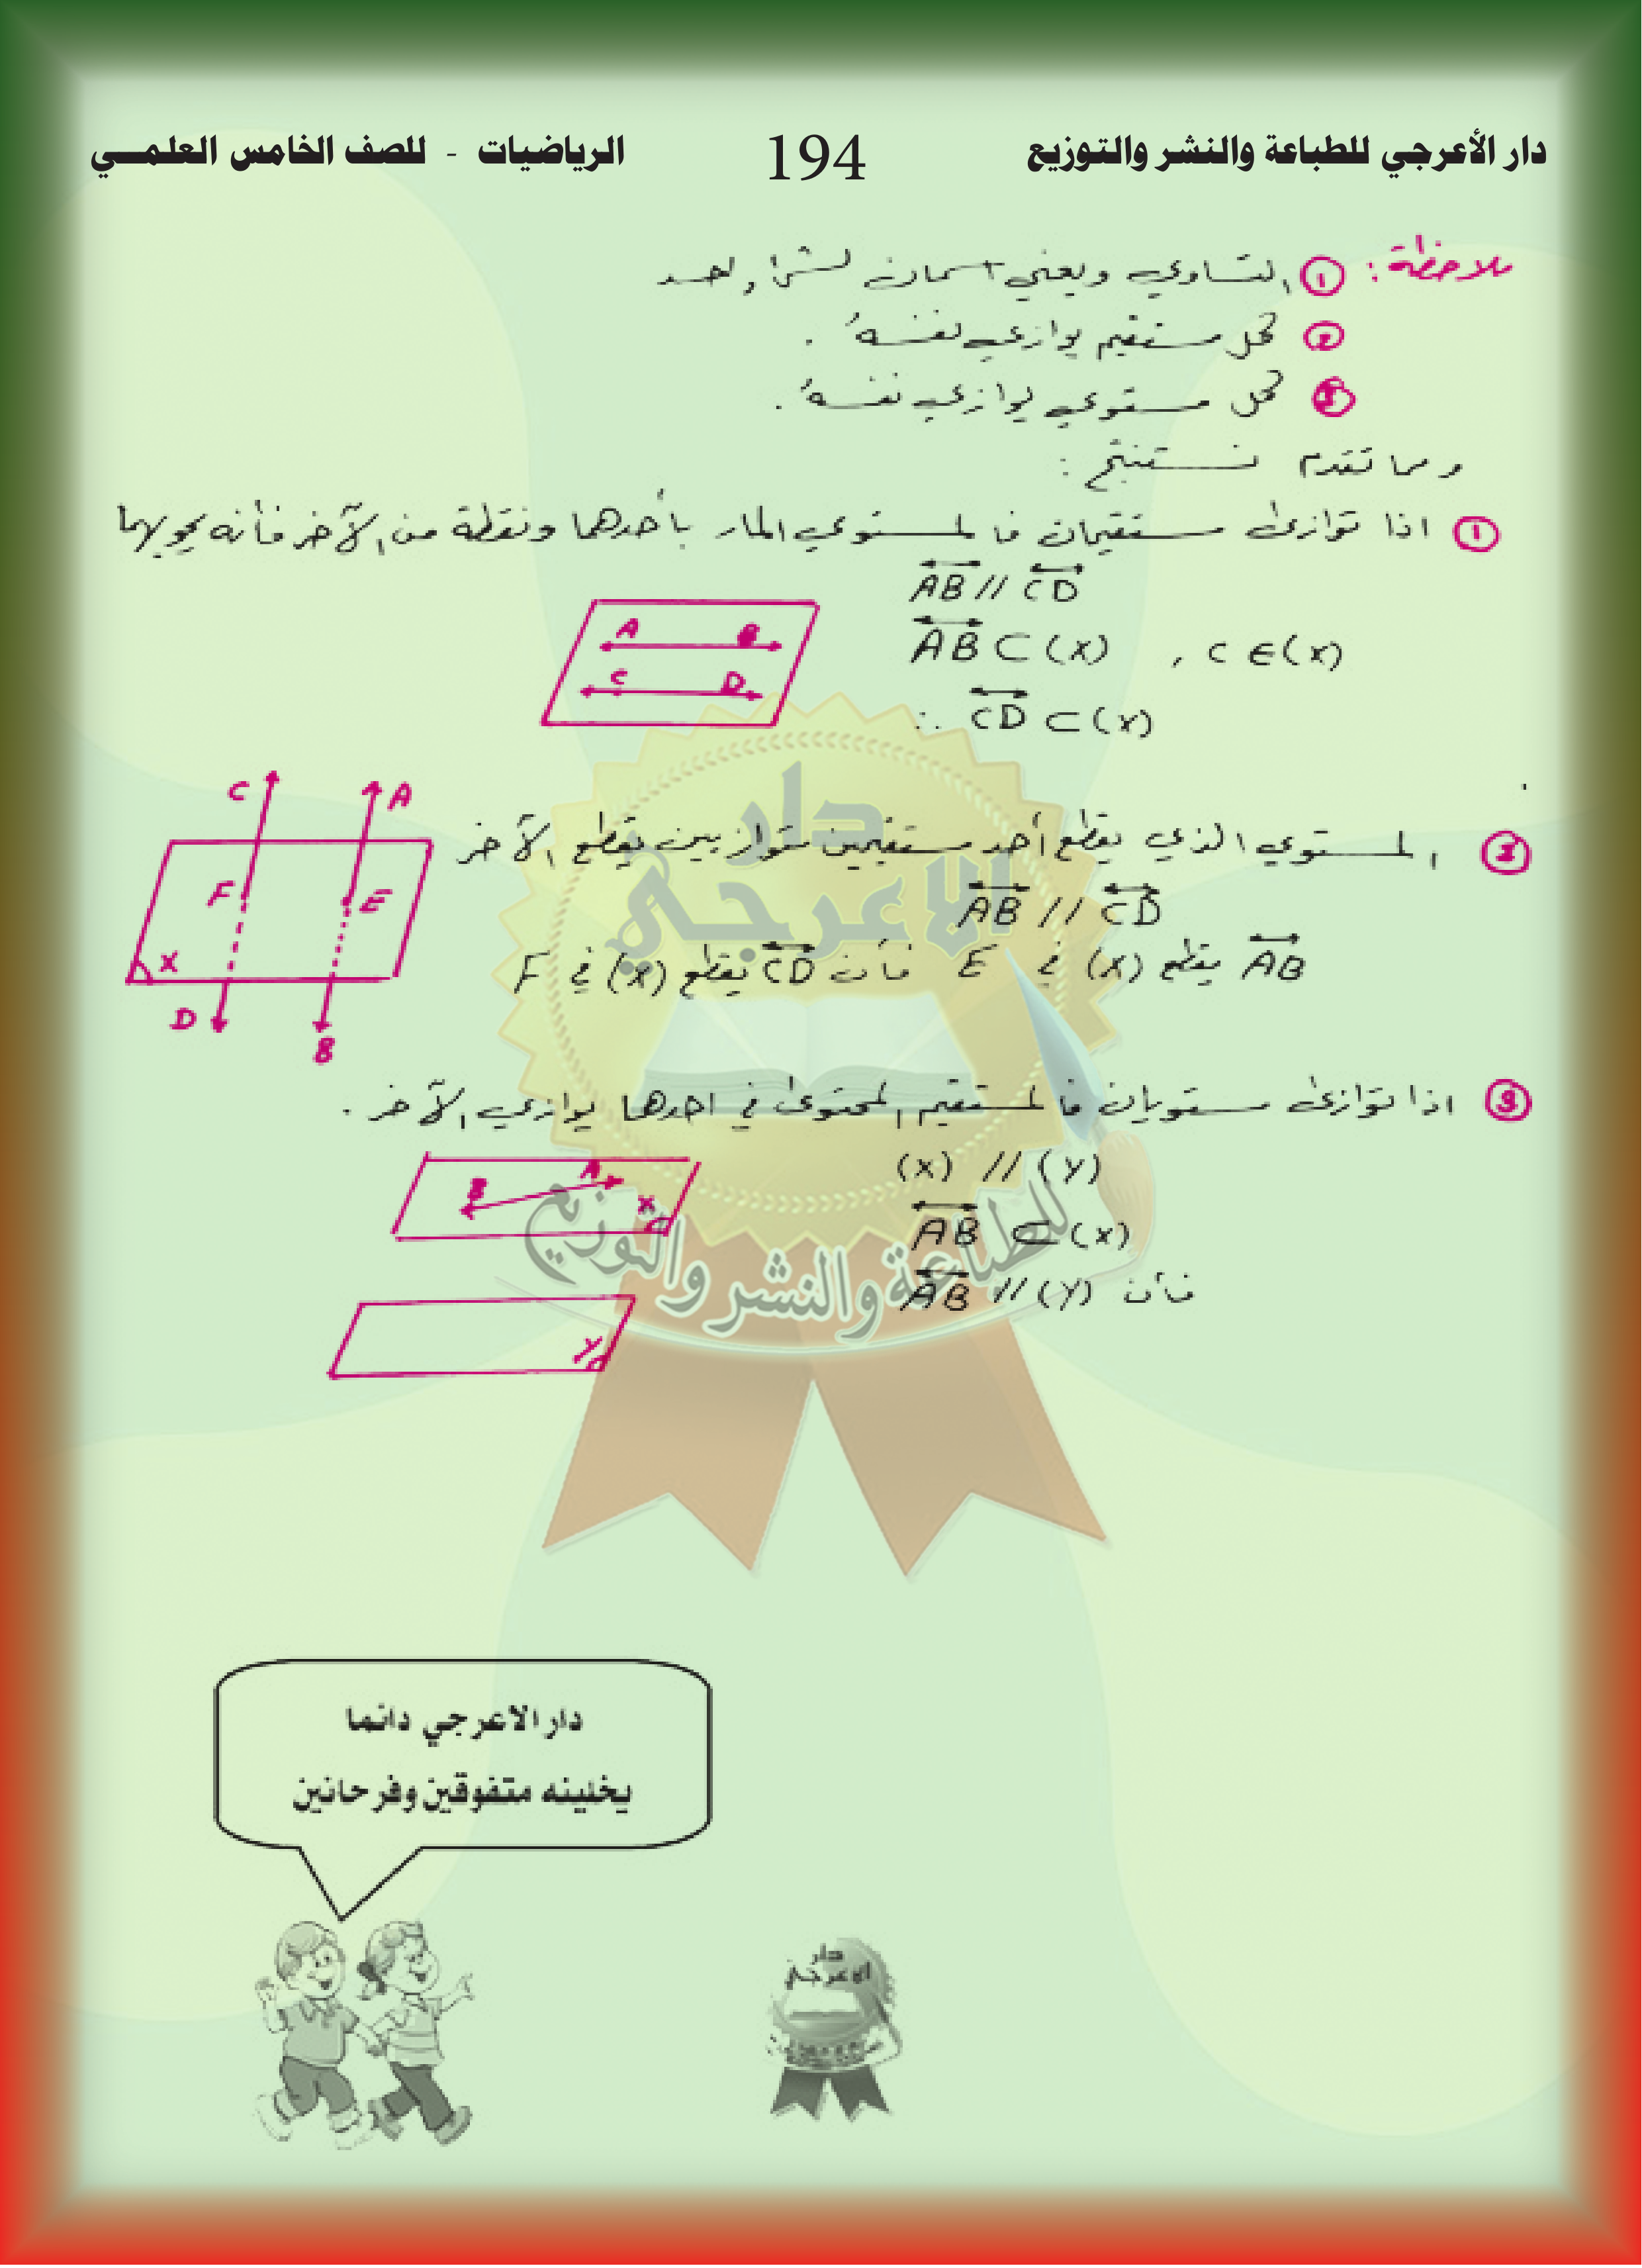 دار الأعرجي للطباعة والنشر والتوزيع 194 الرياضيات - للصف الخامس العلمي
ملاحظة: ① التساوي ويعني اسمان لشئ واحد
② كل مستقيم يوازي نفسهُ .
③ كل مستوي يوازي نفسهُ .
ومما تقدم نستنتج :
① اذا توازى مستقيمان فالمستوي المار بأحدهما ونقطة من الآخر فأنه يحويهما
AB // CD
AB ⊂ (X) , C ∈ (X)
∴ CD ⊂ (X)
A B
C D
② المستوي الذي يقطع أحد مستقيمين متوازيين يقطع الآخر
AB // CD
AB يقطع (X) في E فأن CD يقطع (X) في F
C A
F E
X
D B
③ اذا توازى مستويان فالمستقيم المحتوى في احدهما يوازي الآخر .
(X) // (Y)
AB ⊂ (X)
فأن AB // (Y)
B A
X
Y
دار الاعرجي
للطباعة والنشر والتوزيع
دار الاعرجي دائما
يخلينه متفوقين وفرحانين
دار
الاعرجي